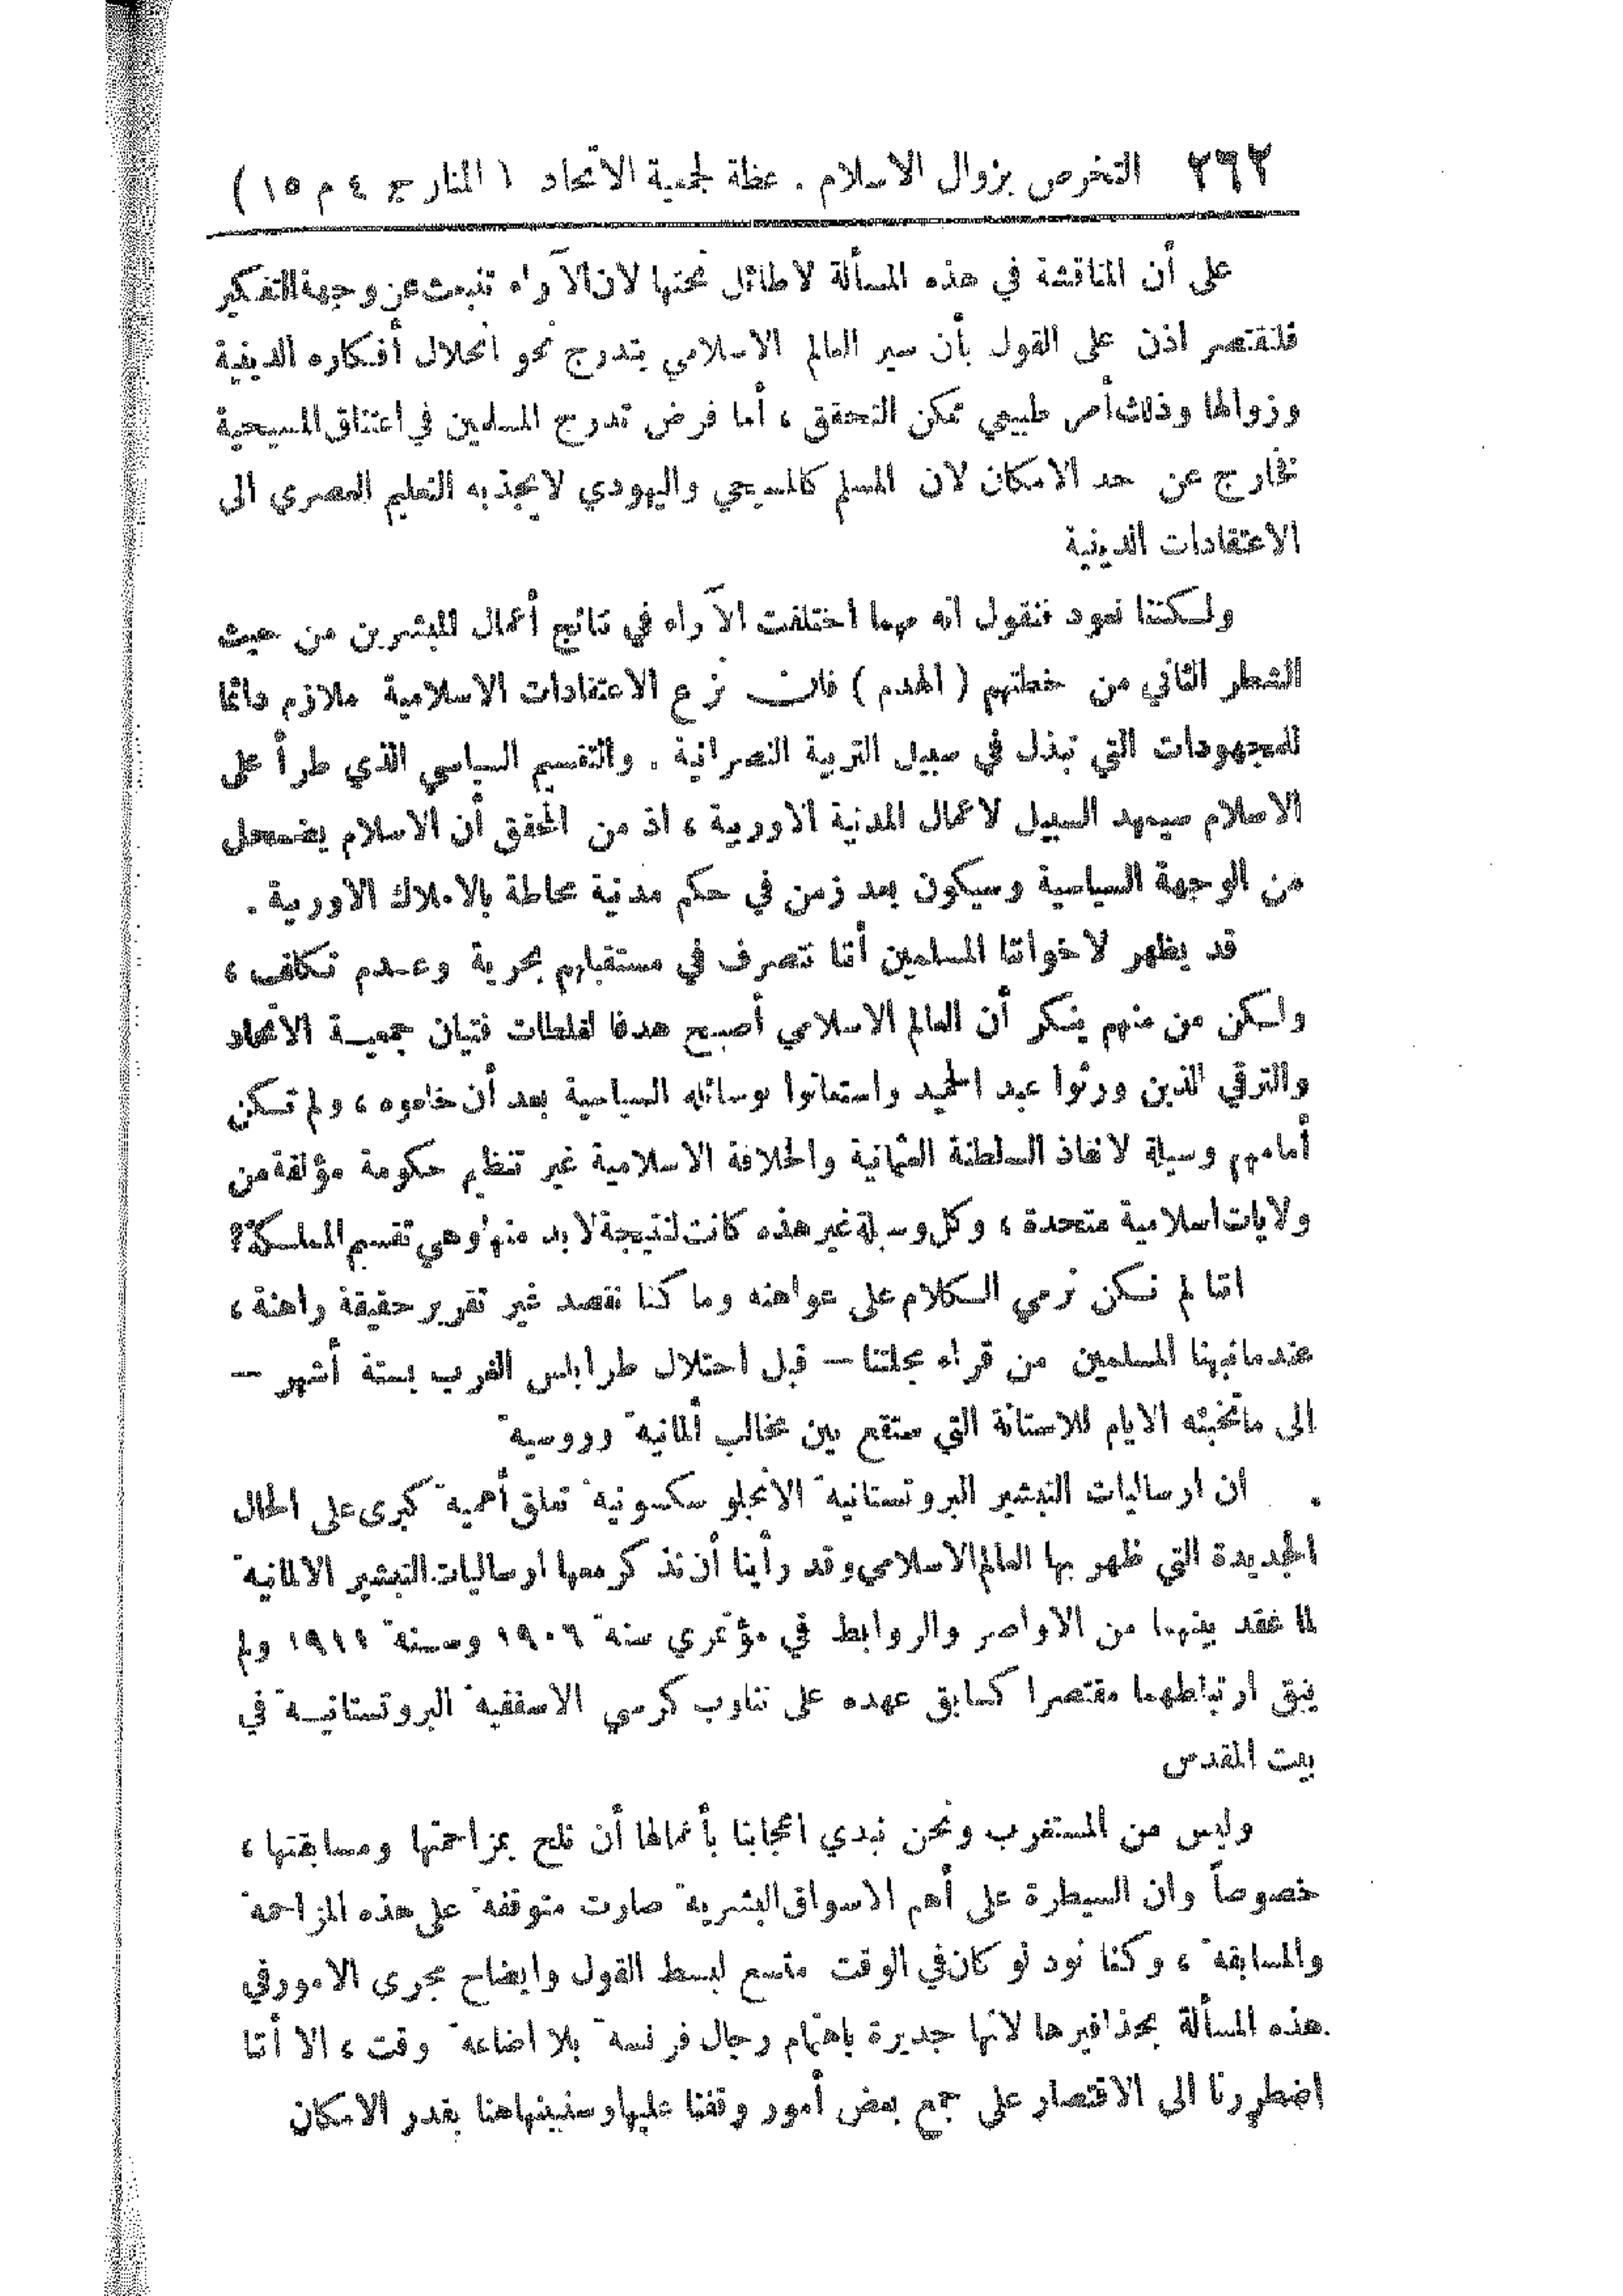 ٢٦٢ التخرص بزوال الاسلام . عظة لجمعية الاتحاد ( المنار ج ٤ م ١٥ )
على أن المناقشة في هذه المسألة لا طائل تحتها لان الآراء تنبعث عن وجهة التفكير
فلنقتصر اذن على القول بأن سير العالم الاسلامي يتدرج نحو انحلال أفكاره الدينية
وزوالها وذلك أمر طبيعي ممكن التحقق ، أما فرض تدرج المسلمين في اعتناق المسيحية
نخارج عن حد الامكان لان المسلم كالمسيحي واليهودي لا يجذبه التعليم العصري الى
الاعتقادات الدينية
ولكننا نعود فنقول انه مهما اختلفت الآراء في نتائج أعمال المبشرين من حيث
الشطر الثاني من خطتهم ( الهدم ) فان نزع الاعتقادات الاسلامية ملازم دائما
للمجهودات التي تبذل في سبيل التربية النصرانية . والتقسيم السياسي الذي طرأ على
الاسلام سيمهد السبيل لاعمال المدنية الاوربية ، اذ من المحقق أن الاسلام يضمحل
من الوجهة السياسية وسيكون بعد زمن في حكم مدنية محاطة بالاملاك الاوربية .
قد يظهر لاخواننا المسلمين أننا نتصرف في مستقبلهم بحرية وعدم تكلف ،
ولكن من منهم ينكر أن العالم الاسلامي أصبح هدفا لغلطات فتيان جمعية الاتحاد
والترقي الذين ورثوا عبد الحميد واستعانوا بوسائله السياسية بعد أن خلعوه ، ولم تكن
أمامهم وسيلة لانقاذ السلطنة العثمانية والخلافة الاسلامية غير تنظيم حكومة مؤلفة من
ولايات اسلامية متحدة ، وكل وسيلة غير هذه كانت لنتيجة لا بد منها وهي تقسيم المملكة؟
اننا لم نكن نرمي الكلام على عواهنه وما كنا نقصد غير تقرير حقيقة راهنة ،
عندما نبهنا المسلمين من قراء مجلتنا – قبل احتلال طرابلس الغرب بستة أشهر –
الى ما تخبئه الايام للاستانة التي ستقع بين مخالب ألمانية وروسية
ان ارساليات التبشير البروتستانية الانجلو سكسونية تعلق أهمية كبرى على الحال
الجديدة التي ظهر بها العالم الاسلامي وقد رأينا أن نذكر معها ارساليات التبشير الالمانية
لما عقد بينهما من الاواصر والروابط في مؤتمري سنة ١٩٠٦ وسنة ١٩١١ ولم
يبق ارتباطهما مقتصرا كسابق عهده على تناوب كرسي الاسقفية البروتستانية في
بيت المقدس
وليس من المستغرب ونحن نبدي اعجابنا بأعمالها أن نلح بمزاحمتها ومسابقتها ،
خصوصاً وان السيطرة على أهم الاسواق البشرية صارت متوقفة على هذه المزاحمة
والمسابقة ، وكنا نود لو كان في الوقت متسع لبسط القول وايضاح مجرى الامور في
هذه المسألة بحذافيرها لانها جديرة باهتمام رجال فرنسة بلا اضاعة وقت ، الا أننا
اضطررنا الى الاقتصار على جمع بعض أمور وقفنا عليها وسنبينها هنا بقدر الامكان